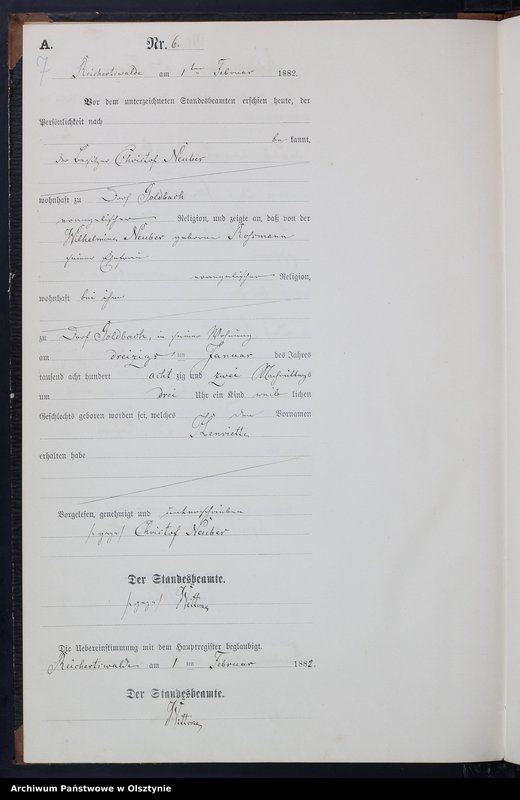 A. Nr. 6.
7
Reichertswalde am 1ten Februar 1882.
Vor dem unterzeichneten Standesbeamten erschien heute, der
Persönlichkeit nach
be kannt,
der Besitzer Christof Neuber
wohnhaft zu Dorf Goldbach
evangelischer Religion, und zeigte an, daß von der
Wilhelmine Neuber geborne Rohrmann
seiner Ehefrau
evangelischer Religion,
wohnhaft bei ihm
zu Dorf Goldbach, in seiner Wohnung
am dreizigsten Januar des Jahres
tausend acht hundert acht zig und zwei Nachmittags
um drei Uhr ein Kind weib lichen
Geschlechts geboren worden sei, welches den Vornamen
Henriette
erhalten habe
Vorgelesen, genehmigt und unterschrieben
/:gez:/ Christof Neuber
Der Standesbeamte.
/:gez:/
Die Uebereinstimmung mit dem Hauptregister beglaubigt.
Reichertswalde am 1ten Februar 1882.
Der Standesbeamte.
Archiwum Państwowe w Olsztynie